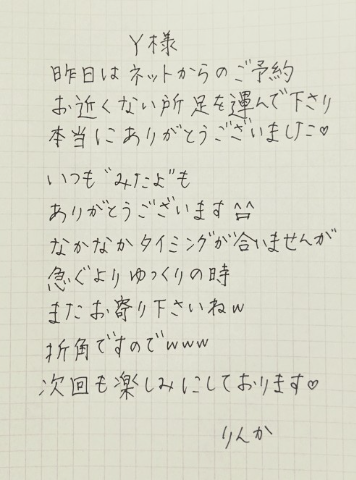 Y様
昨日はネットからのご予約
お近くない所足を運んで下さり
本当にありがとうございました♡
いつも"みたよ"も
ありがとうございます^^
なかなかタイミングが合いませんが
急ぐよりゆっくりの時
またお寄り下さいねw
折角ですのでwww
次回も楽しみにしております♡
りんか